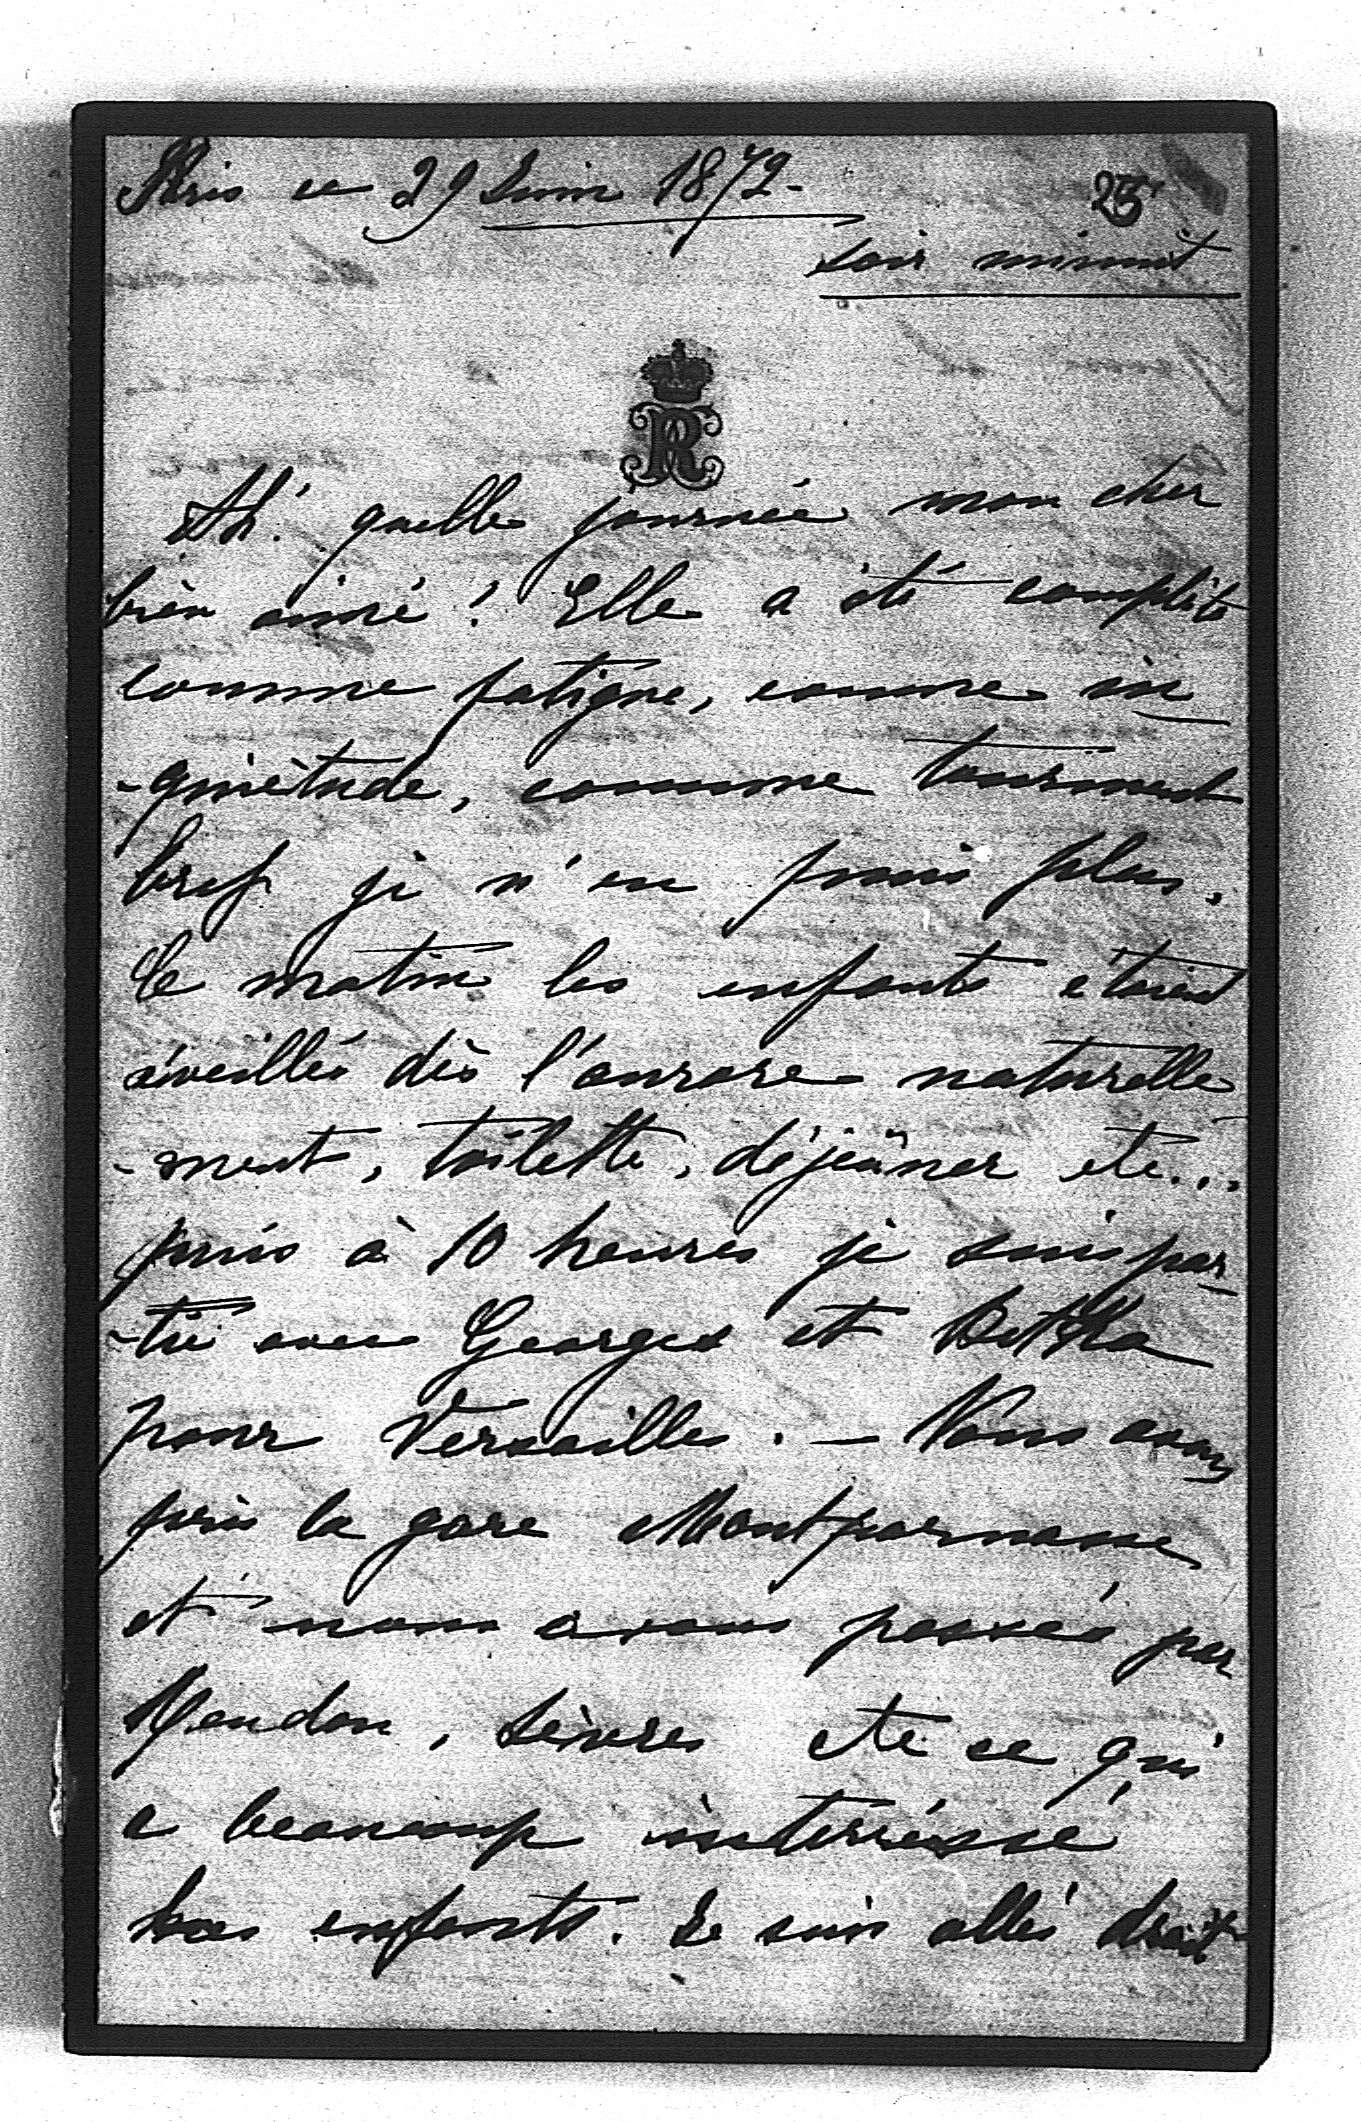 Paris ce 29 Juin 1872 - 25
soir minuit
R
Ah! quelle journée mon cher
bien aimé! Elle a été complète
comme fatigue, comme in
-quiétude, comme tourment
bref je n'en puis plus.
Le matin les enfants étaient
éveillés dès l'aurore naturelle
-ment, toilette, déjeûner etc...
puis à 10 heures je suis par
-tie avec Georges et
pour Versailles. - Nous avons
pris la gare Montparnasse
et nous avons passés par
Meudon, Sèvres etc ce qui
a beaucoup interréssé
les enfants. Je suis allée droit